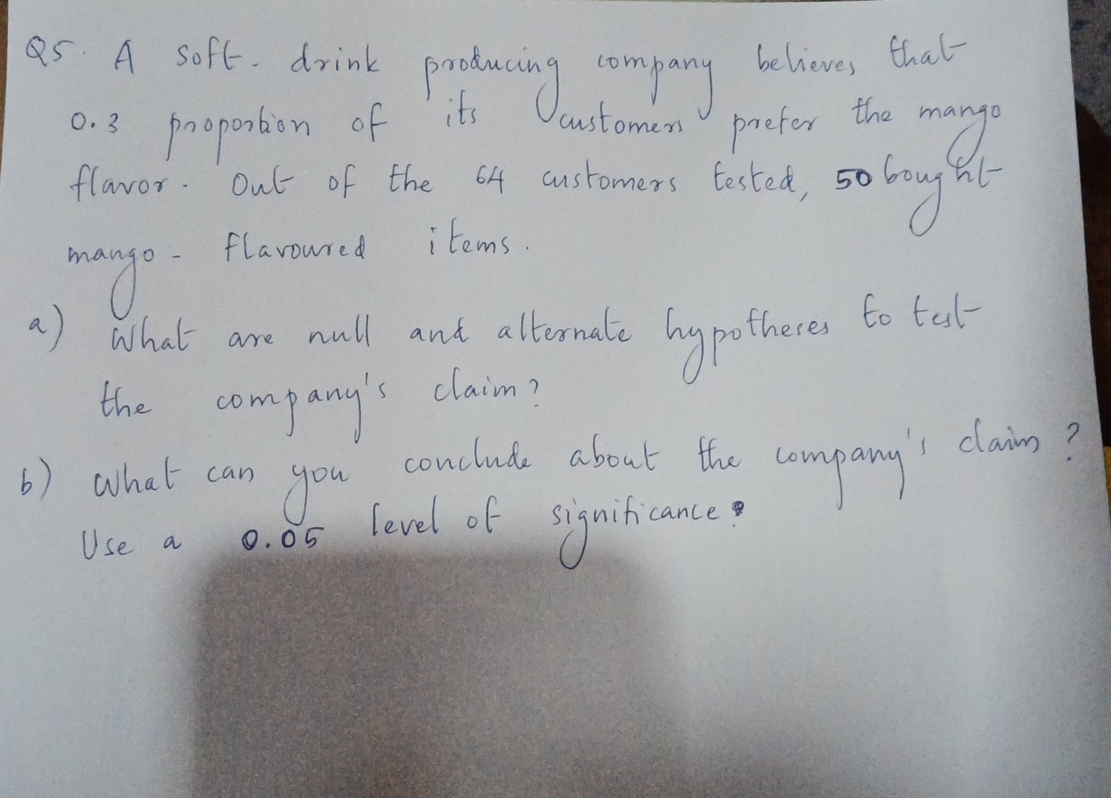 Q5. A soft-drink producing company believes that
0.3 proportion of its customers prefer the mango
flavor. Out of the 64 customers tested, 50 bought
mango-flavoured items.
a) What are null and alternate hypotheses to test
the company's claim?
b) What can you conclude about the company's claim?
Use a 0.05 level of significance?